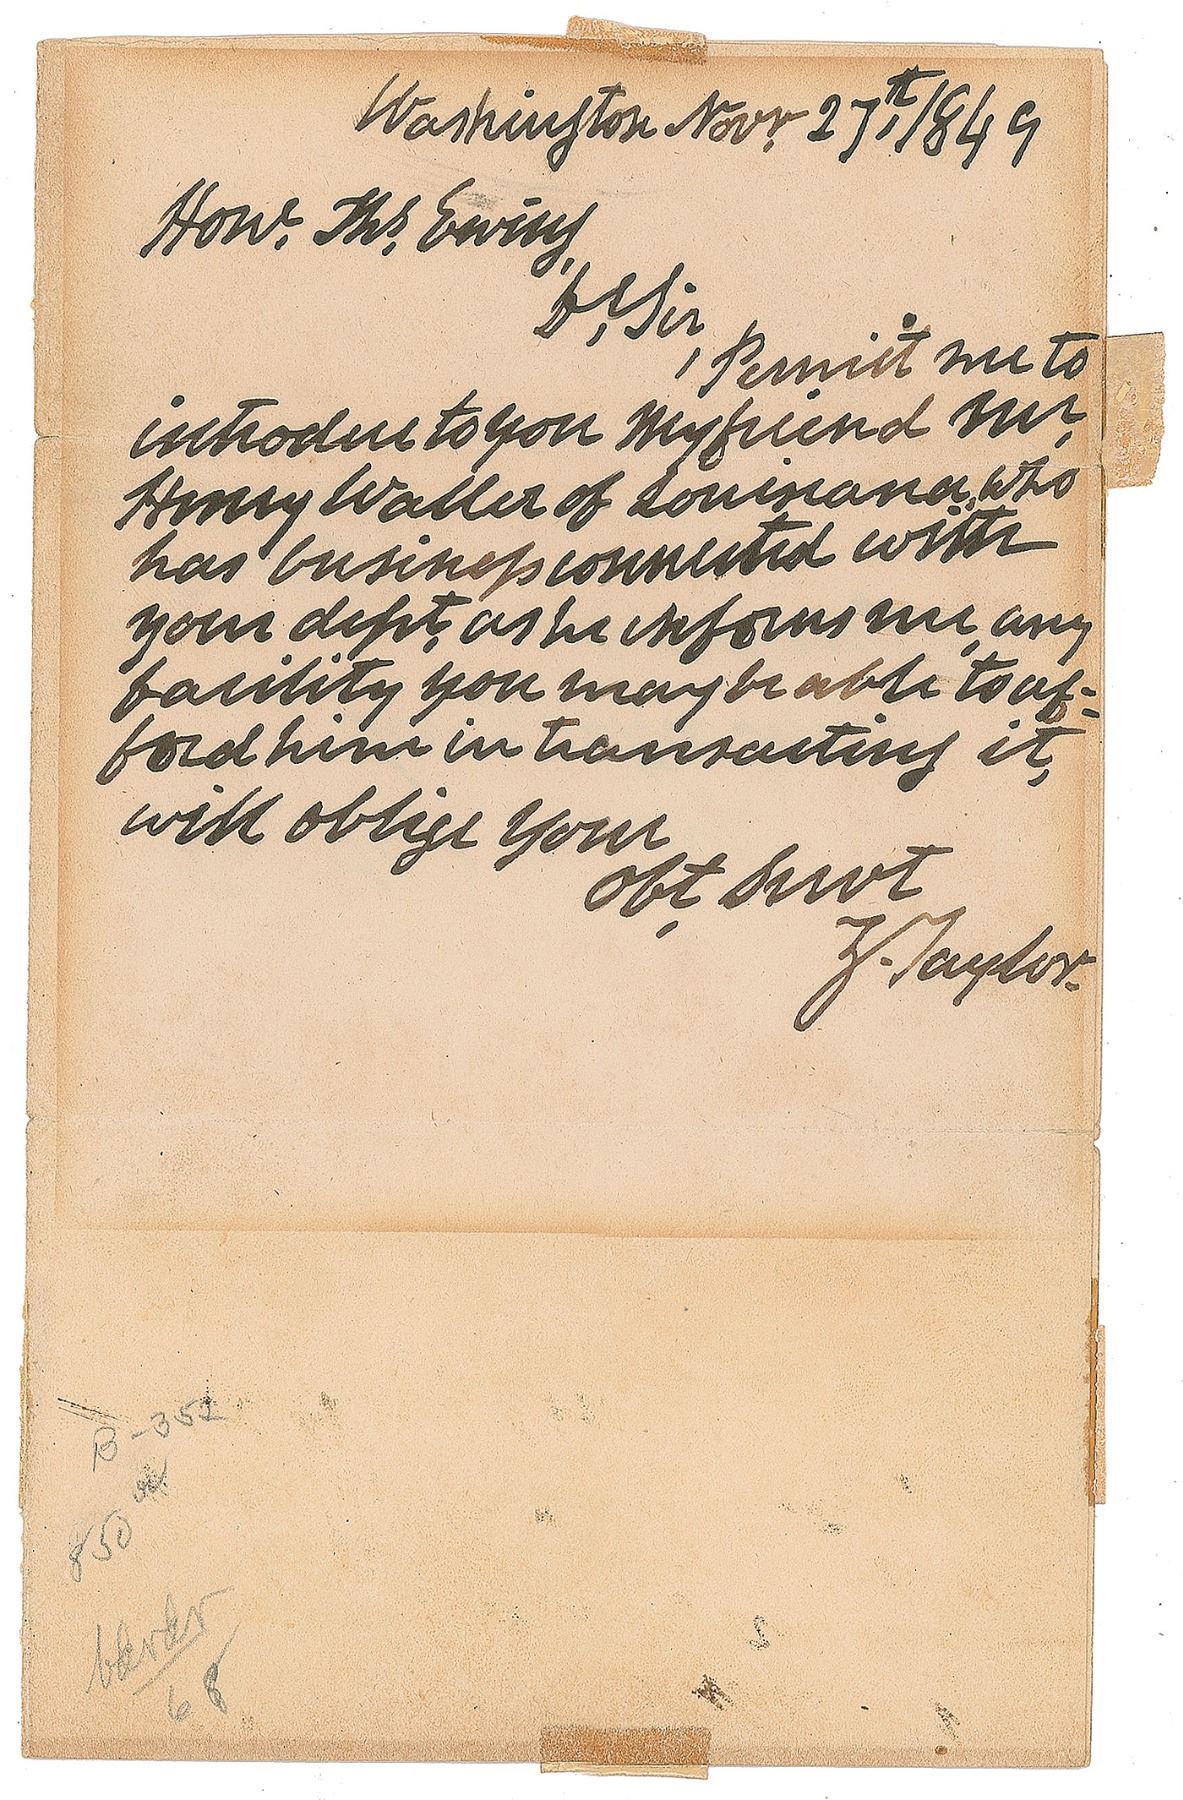 Washington Novr. 27th, 1849
Honl. Ths. Ewing,
Dr, Sir,
Permit me to
introduce to you my friend Mr,
Henry Waller of Louisiana, who
has business connected with
your dept, as he informs me, any
facility you may be able to af=
ford him in transacting it,
will oblige your
obt, Servt
Z. Taylor.
B-352
850
68